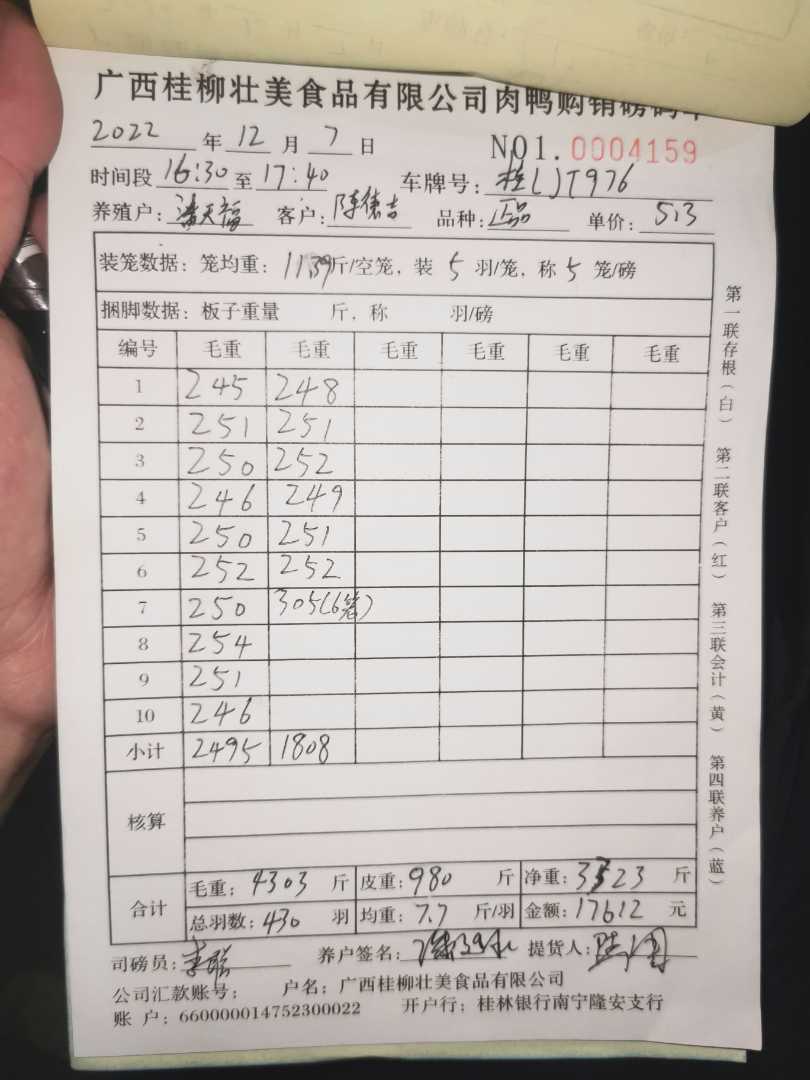 广西桂柳壮美食品有限公司肉鸭购销磅码单
2022 年 12 月 7 日 NO1.0004159
时间段 16:30 至 17:40 车牌号: 桂LJT976
养殖户: 潘天福 客户: 陈德吉 品种: 正品 单价: 5.13
装笼数据: 笼均重: 11.39 斤/空笼, 装 5 羽/笼, 称 5 笼/磅
捆脚数据: 板子重量 斤, 称 羽/磅
编号 毛重 毛重 毛重 毛重 毛重 毛重
1 245 248
2 251 251
3 250 252
4 246 249
5 250 251
6 252 252
7 250 305(6笼)
8 254
9 251
10 246
小计 2495 1808
核算
合计 毛重: 4303 斤 皮重: 980 斤 净重: 3323 斤
总羽数: 430 羽 均重: 7.7 斤/羽 金额: 17612 元
司磅员: 养户签名: 提货人:
公司汇款账号: 户名: 广西桂柳壮美食品有限公司
账 户: 660000014752300022 开户行: 桂林银行南宁隆安支行
第一联存根(白) 第二联客户(红) 第三联会计(黄) 第四联养户(蓝)